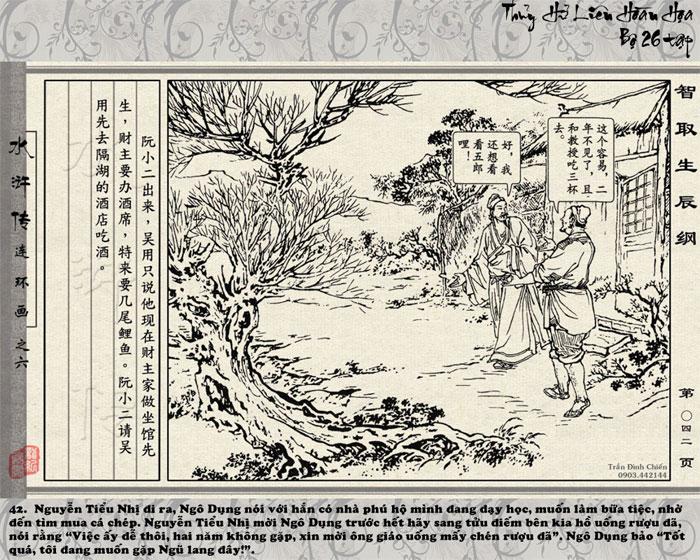 Thủy Hử Liên Hoàn Họa
Bộ 26 tập
智取生辰纲
第〇四二页
这个容易，二
年不见了，且
和教授吃三杯
去。
好，我
还想看
看五郎
哩！
阮小二出来，吴用只说他现在财主家做坐馆先
生，财主要办酒席，特来要几尾鲤鱼。阮小二请吴
用先去隔湖的酒店吃酒。
水浒传连环画之六
Trần Đình Chiến
0903.442144
42. Nguyễn Tiểu Nhị đi ra, Ngô Dụng nói với hắn có nhà phú hộ mình đang dạy học, muốn làm bữa tiệc, nhờ
đến tìm mua cá chép. Nguyễn Tiểu Nhị mời Ngô Dụng trước hết hãy sang tửu điếm bên kia hồ uống rượu đã,
nói rằng “Việc ấy dễ thôi, hai năm không gặp, xin mời ông giáo uống mấy chén rượu đã”. Ngô Dụng bảo “Tốt
quá, tôi đang muốn gặp Ngũ lang đây!”.